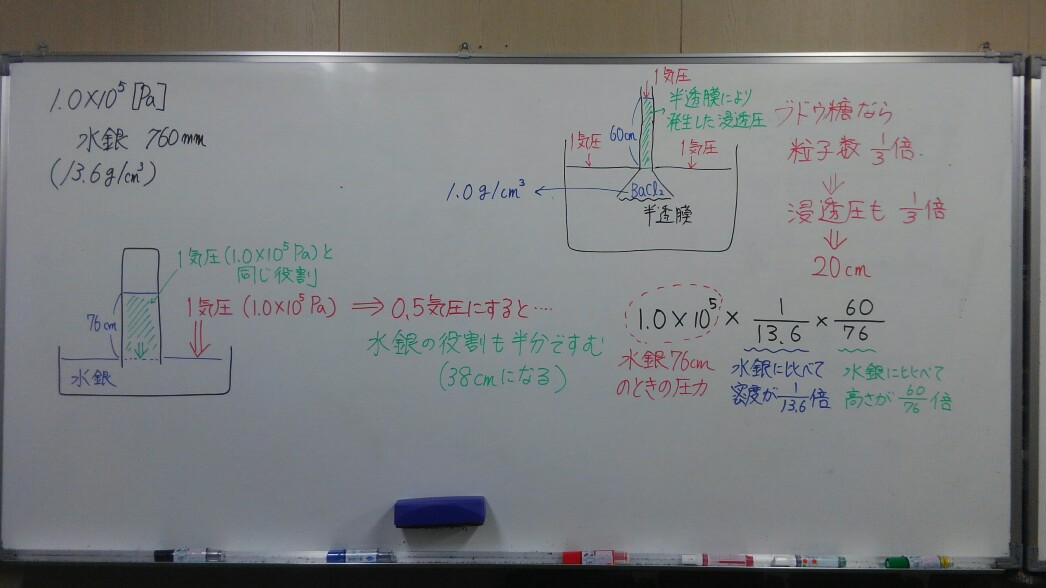 1.0×10⁵ [Pa]
水銀 760mm
(13.6g/cm³)
1気圧(1.0×10⁵Pa)と
同じ役割
76cm
水銀
1気圧 (1.0×10⁵Pa)
⇒ 0.5気圧にすると…
水銀の役割も半分ですむ
(38cmになる)
1気圧
半透膜により
発生した浸透圧
60cm
1気圧
1気圧
1.0g/cm³
BaCl₂
半透膜
ブドウ糖なら
粒子数 1/3倍.
⇓
浸透圧も 1/3倍
⇓
20cm
1.0×10⁵ × 1/13.6 × 60/76
水銀76cm
のときの圧力
水銀に比べて
密度が1/13.6倍
水銀に比べて
高さが60/76倍